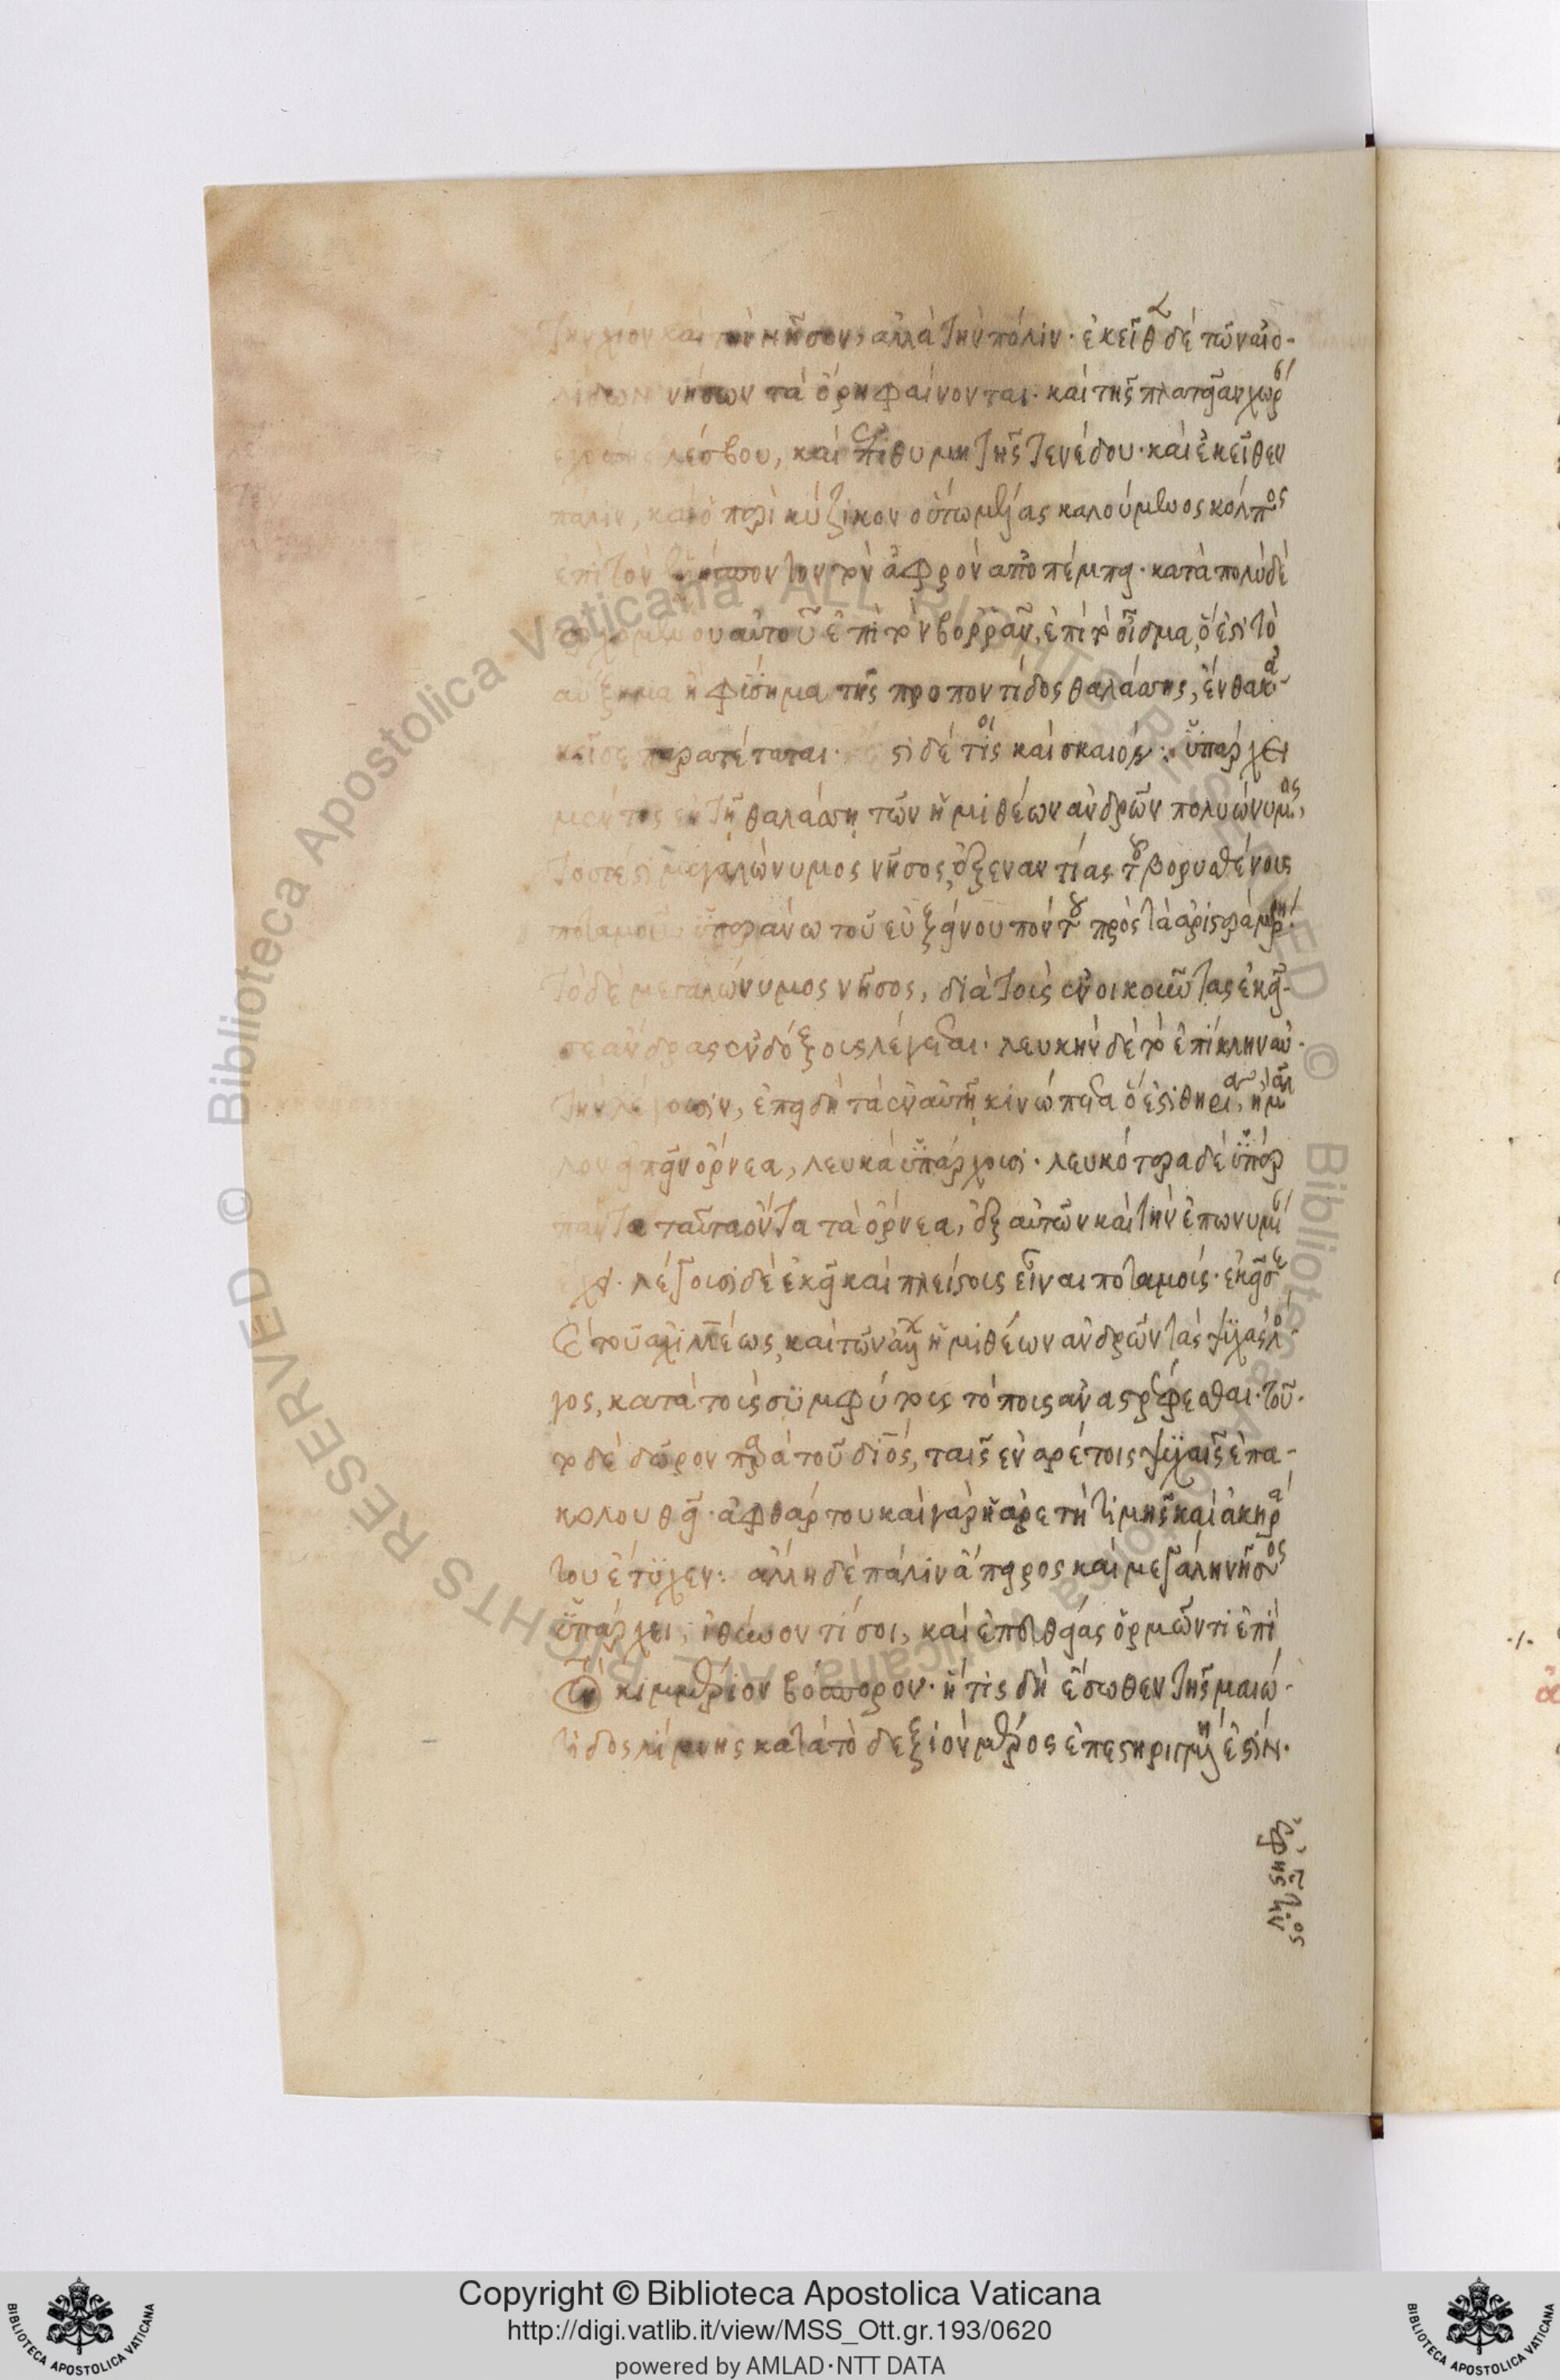 τὴν χίον καὶ τὴν νῆσον, ἀλλὰ τὴν πόλιν· ἐκεῖθεν δὲ τῶν αἰο-
λίδων νήσων τὰ ὄρη φαίνονται· καὶ τῆς πλατείαν χώρ
λέσβου, καὶ ἐπιθυμη τῆς τενέδου· καὶ ἐκεῖθεν
πάλιν, καὶ ὁ περὶ κύζικον οὕτω μέλας καλούμενος κόλπος
ἐπὶ τὸν ἑλλήσποντον τὸν ἀφρὸν ἀποπέμπει· κατὰ πολὺ δὲ
αὐτοῦ ἐπὶ τὸν βορρᾶν, ἐπὶ τὸ οἶδμα, ὅ ἐστι τὸ
αὔξημα ἢ φύσημα τῆς προποντίδος θαλάσσης, ἔνθα κα-
κεῖσε παρατέταται. ἔστι δέ τις καὶ σκαιός: ὑπάρχει
μέντοι ἐν τῇ θαλάσσῃ τῶν ἡμιθέων ἀνδρῶν πολυώνυμος,
τουτέστι μεγαλώνυμος νῆσος, ἐξεναντίας τοῦ βορυσθένους
ποταμοῦ ὑπεράνω τοῦ εὐξείνου πόντου πρὸς τὰ ἀριστερὰ μέρη·
τὸ δὲ μεγαλώνυμος νῆσος, διὰ τοὺς ἐνοικοῦντας ἐκεῖ-
σε ἄνδρας ἐνδόξους λέγεσθαι. λευκὴν δὲ τὸ ἐπίκλην αὐ-
τὴν λέγουσιν, ἐπειδὴ τὰ ἐν αὐτῇ κινώπετα ὅ ἐστι θηρία, ἢ μᾶλ
λον εἰπεῖν ὄρνεα, λευκὰ ὑπάρχουσι· λευκότερα δὲ ὑπὲρ
πάντα ταῦτα ὄντα τὰ ὄρνεα, ἐξ αὐτῶν καὶ τὴν ἐπωνυμί
ἔχει. λέγουσι δὲ ἐκεῖ καὶ πλείστους εἶναι ποταμούς· ἐκεῖσε
τε τοῦ ἀχιλλέως, καὶ τῶν ἄλλων ἡμιθέων ἀνδρῶν τὰς ψυχὰς λό-
γος, κατὰ τοὺς συμφύτους τόπους ἀναστρέφεσθαι. τοῦ-
το δὲ δῶρον παρὰ τοῦ διός, ταῖς ἐναρέτοις ψυχαῖς ἐπα-
κολουθεῖ· ἀφθάρτου καὶ γὰρ ἡ ἀρετὴ τιμῆς καὶ ἀκηρά
του ἔτυχεν: ἄλλη δὲ πάλιν ἄπειρος καὶ μεγάλη νῆσος
ὑπάρχει, ἰθύνοντί σοι, καὶ ἐπ' εὐθείας ὁρμῶντι ἐπὶ
τὸν κιμμέριον βόσπορον· ἥτις δὴ ἔσωθεν τῆς μαιώ-
τιδος λίμνης κατὰ τὸ δεξιὸν μέρος ἐπεστηριγμένη ἐστίν.
Copyright © Biblioteca Apostolica Vaticana
http://digi.vatlib.it/view/MSS_Ott.gr.193/0620
powered by AMLAD·NTT DATA